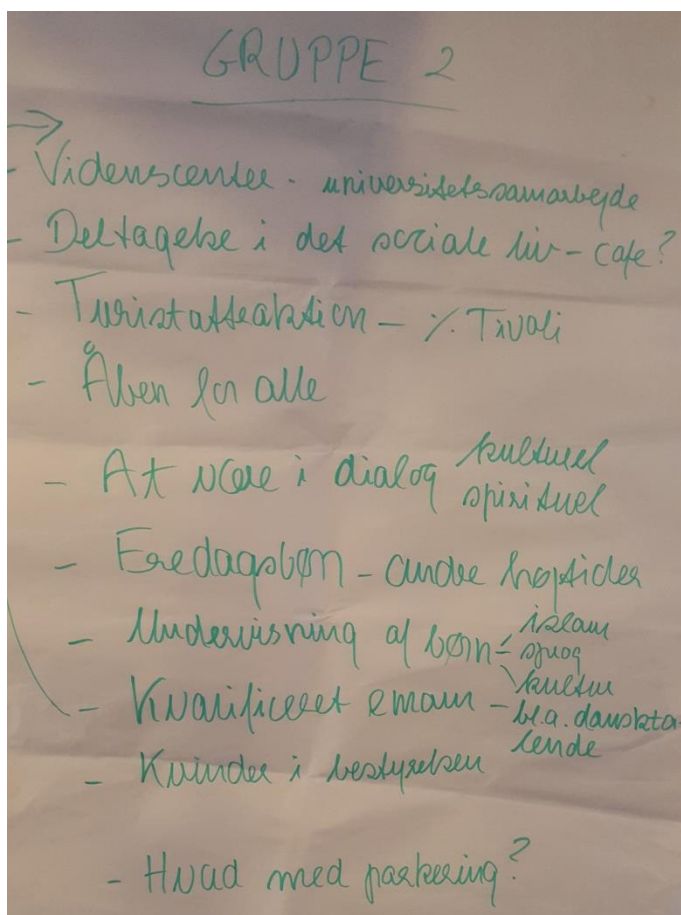 GRUPPE 2
→
- Videnscenter - universitetssamarbejde
- Deltagelse i det sociale liv - cafe?
- Turistattraktion - ./. Tivoli
- Åben for alle
- At være i dialog kulturel
spirituel
- Fredagsbøn - andre højtider
- Undervisning af børn - islam
sprog
kultur
- Kvalificeret emam - bl.a. danskta-
lende
- Kvinder i bestyrelsen
- Hvad med parkering?